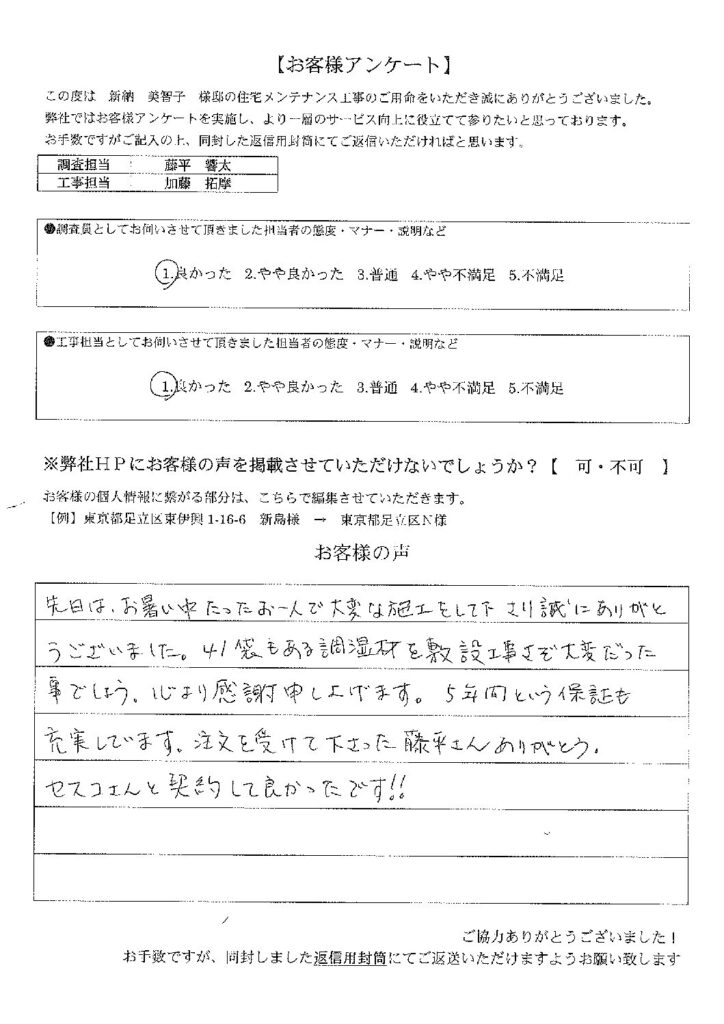 【お客様アンケート】
この度は 新納 美智子 様邸の住宅メンテナンス工事のご用命をいただき誠にありがとうございました。
弊社ではお客様アンケートを実施し、より一層のサービス向上に役立てて参りたいと思っております。
お手数ですがご記入の上、同封した返信用封筒にてご返信いただければと思います。
調査担当 藤平 響太
工事担当 加藤 拓摩
●調査員としてお伺いさせて頂きました担当者の態度・マナー・説明など
1.良かった 2.やや良かった 3.普通 4.やや不満足 5.不満足
●工事担当としてお伺いさせて頂きました担当者の態度・マナー・説明など
1.良かった 2.やや良かった 3.普通 4.やや不満足 5.不満足
※弊社HPにお客様の声を掲載させていただけないでしょうか？【 可・不可 】
お客様の個人情報に繋がる部分は、こちらで編集させていただきます。
【例】東京都足立区東伊興1-16-6 新島様 → 東京都足立区N様
お客様の声
先日は、お暑い中たったお一人で大変な施工をして下さり誠にありがと
うございました。41袋もある調湿材を敷設工事さぞ大変だった
事でしょう。心より感謝申し上げます。5年間という保証も
充実しています。注文を受けて下さった藤平さんありがとう。
セスコさんと契約して良かったです!!
ご協力ありがとうございました！
お手数ですが、同封しました返信用封筒にてご返送いただけますようお願い致します